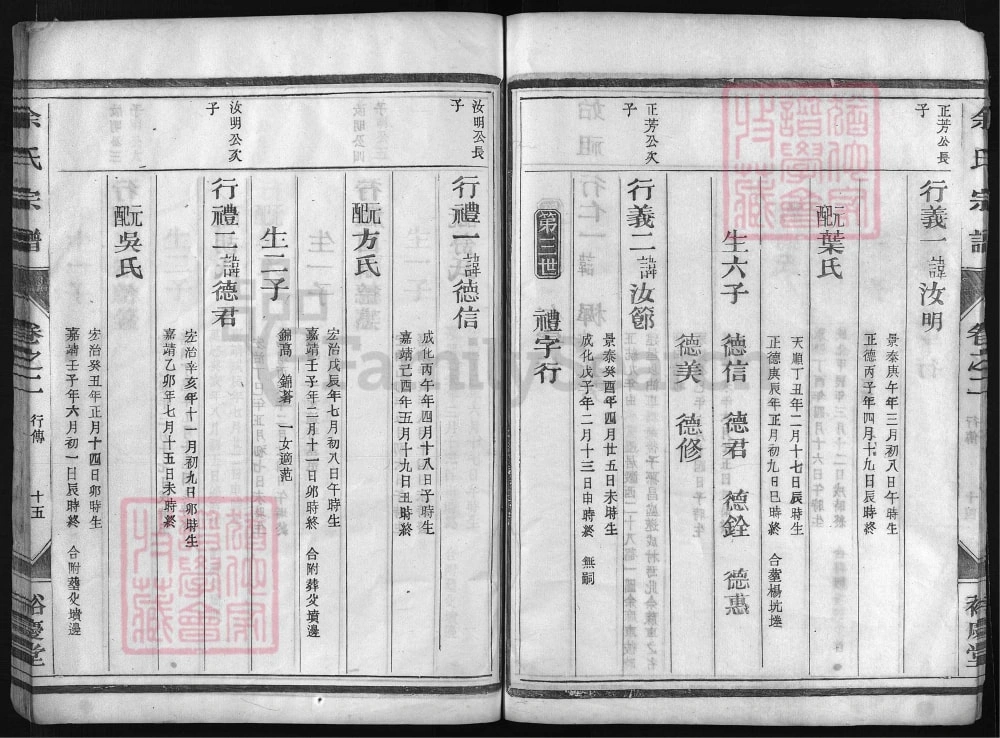 余氏宗譜
卷之二
行傳
裕慶堂
正芳公長
子
行義一諱汝明
景泰庚午年三月初八日午時生
正德丙子年四月十九日辰時終
元配葉氏
天順丁丑年二月十七日辰時生
正德庚辰年正月初九日巳時終 合塟楊坑垄
生六子 德信 德君 德銓 德惠
德美 德修
正芳公次
子
行義二諱汝節
景泰癸酉年四月廿五日未時生
成化戊子年二月十三日申時終 無嗣
第三世 禮字行
汝明公長
子
行禮一諱德信
成化丙午年四月十八日子時生
嘉靖己酉年五月十九日丑時終
元配方氏
宏治戊辰年七月初八日午時生
嘉靖壬子年二月十一日卯時終 合附葬父墳邊
生二子
錦高 錦著 一女適范
汝明公次
子
行禮二諱德君
宏治辛亥年十一月初九日卯時生
嘉靖乙卯年七月十五日未時終
元配吳氏
宏治癸丑年正月十四日卯時生
嘉靖壬子年六月初一日辰時終 合附塟父墳邊
余氏宗譜
卷之二
行傳
十五
裕慶堂
FamilySearch